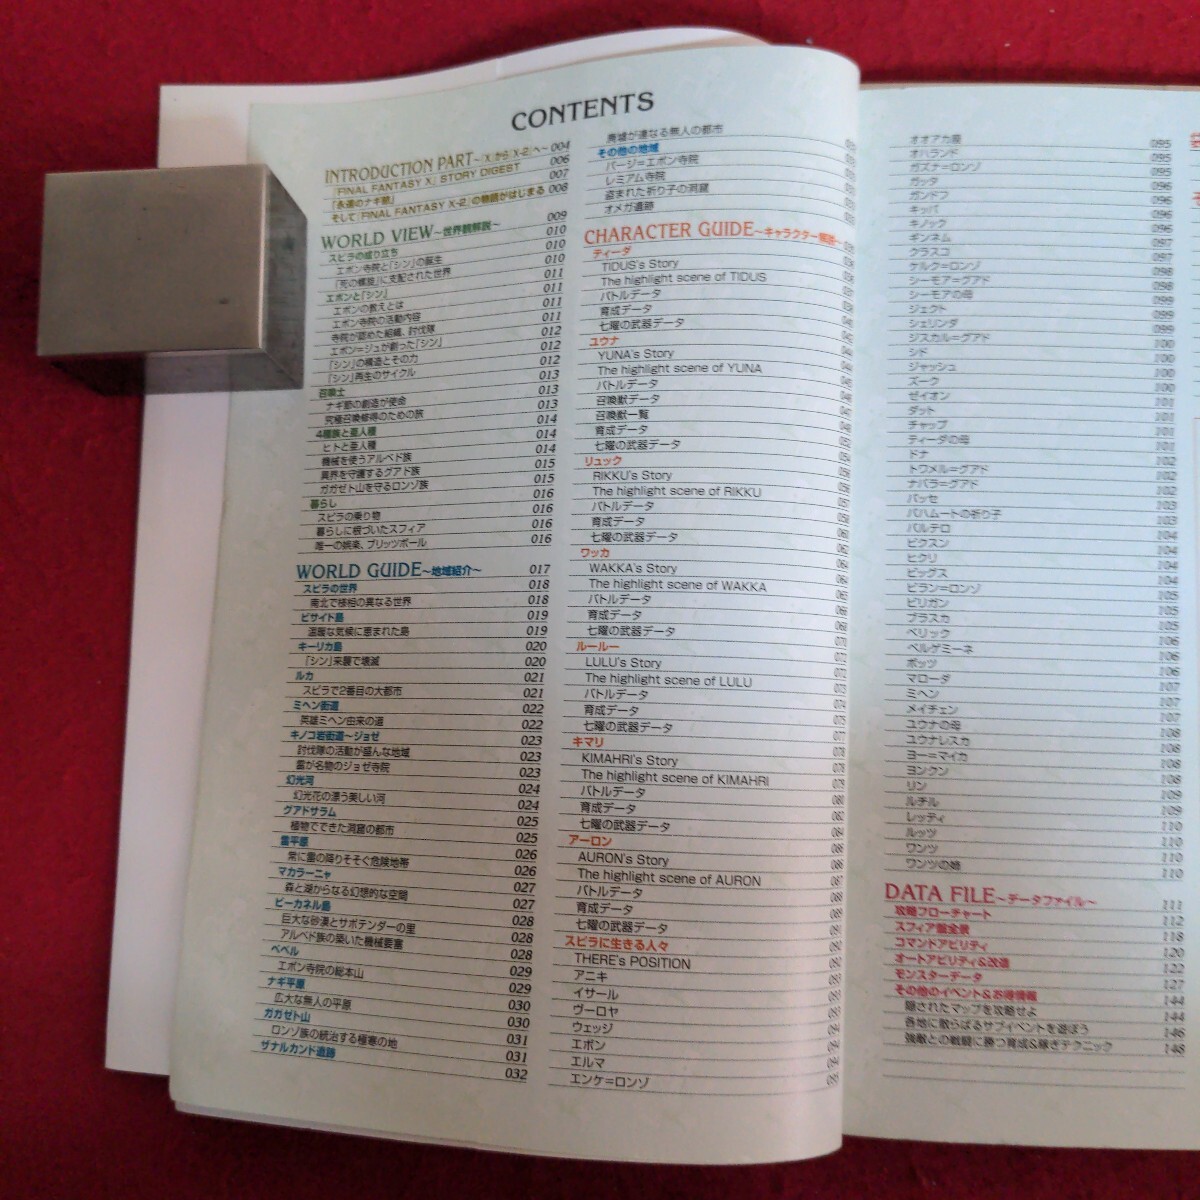 CONTENTS
INTRODUCTION PART～『X』から『X-2』へ～ 004
『FINAL FANTASY X』 STORY DIGEST 006
「永遠のナギ節」 007
そして『FINAL FANTASY X-2』の物語がはじまる 008
WORLD VIEW～世界観解説～ 009
スピラの成り立ち 010
エボン寺院と「シン」の誕生 010
「死の螺旋」に支配された世界 010
エボンと「シン」 011
エボンの教えとは 011
エボン寺院の活動内容 011
寺院が認めた組織、討伐隊 011
エボン＝ジュが創った「シン」 012
「シン」の構造とその力 012
「シン」再生のサイクル 012
召喚士 013
ナギ節の創造が使命 013
究極召喚修得のための旅 013
4種族と亜人種 014
ヒトと亜人種 014
機械を使うアルベド族 014
異界を守護するグアド族 015
ガガゼト山を守るロンゾ族 015
暮らし 016
スピラの乗り物 016
暮らしに根づいたスフィア 016
唯一の娯楽、ブリッツボール 016
WORLD GUIDE～地域紹介～ 017
スピラの世界 018
南北で様相の異なる世界 018
ビサイド島 019
温暖な気候に恵まれた島 019
キーリカ島 020
「シン」来襲で壊滅 020
ルカ 021
スピラで2番目の大都市 021
ミヘン街道 022
英雄ミヘン由来の道 022
キノコ岩街道～ジョゼ 023
討伐隊の活動が盛んな地域 023
雷が名物のジョゼ寺院 023
幻光河 024
幻光花の漂う美しい河 024
グアドサラム 025
植物でできた洞窟の都市 025
雷平原 026
常に雷の降りそそぐ危険地帯 026
マカラーニャ 027
森と湖からなる幻想的な空間 027
ビーカネル島 028
巨大な砂漠とサボテンダーの里 028
アルベド族の築いた機械要塞 028
ベベル 029
エボン寺院の総本山 029
ナギ平原 030
広大な無人の平原 030
ガガゼト山 031
ロンゾ族の統治する極寒の地 031
ザナルカンド遺跡 032
廃墟が連なる無人の都市
その他の地域
バージ＝エボン寺院
レミアム寺院
盗まれた祈り子の洞窟
オメガ遺跡
CHARACTER GUIDE～キャラクター解説～
ティーダ
TIDUS's Story
The highlight scene of TIDUS
バトルデータ
育成データ
七曜の武器データ
ユウナ
YUNA's Story
The highlight scene of YUNA
バトルデータ
召喚獣データ
召喚獣一覧
育成データ
七曜の武器データ
リュック
RIKKU's Story
The highlight scene of RIKKU
バトルデータ
育成データ
七曜の武器データ
ワッカ
WAKKA's Story
The highlight scene of WAKKA
バトルデータ
育成データ
七曜の武器データ
ルールー
LULU's Story
The highlight scene of LULU
バトルデータ
育成データ
七曜の武器データ
キマリ
KIMAHRI's Story
The highlight scene of KIMAHRI
バトルデータ
育成データ
七曜の武器データ
アーロン
AURON's Story
The highlight scene of AURON
バトルデータ
育成データ
七曜の武器データ
スピラに生きる人々
THERE's POSITION
アニキ
イサール
ヴーロヤ
ウェッジ
エボン
エルマ
エンケ＝ロンゾ
オオアカ屋 095
オハランド 095
ガズナ＝ロンゾ 095
ガッタ 096
ガンドフ 096
キッパ 096
キノック 096
ギンネム 097
クラスコ 097
ケルク＝ロンゾ 098
シーモア＝グアド 098
シーモアの母 099
ジェクト 099
シェリンダ 099
ジスカル＝グアド 100
シド 100
ジャッシュ 100
ズーク 100
ゼイオン 101
ダット 101
チャップ 101
ティーダの母 101
ドナ 102
トワメル＝グアド 102
ナバラ＝グアド 102
バッセ 103
バハムートの祈り子 103
バルテロ 104
ビクスン 104
ヒクリ 104
ビッグス 104
ビラン＝ロンゾ 105
ビリガン 105
ブラスカ 105
ベリック 106
ベルゲミーネ 106
ボッツ 106
マローダ 106
ミヘン 107
メイチェン 107
ユウナの母 107
ユウナレスカ 108
ヨー＝マイカ 108
ヨンクン 108
リン 108
ルチル 109
レッティ 109
ルッツ 110
ワンツ 110
ワンツの姉 110
DATA FILE～データファイル～ 111
攻略フローチャート 112
スフィア盤全景 118
コマンドアビリティ 120
オートアビリティ&改造 122
モンスターデータ 127
その他のイベント&お得情報 144
隠されたマップを攻略せよ 144
各地に散らばるサブイベントを遊ぼう 146
強敵との戦闘に勝つ育成&稼ぎテクニック 148